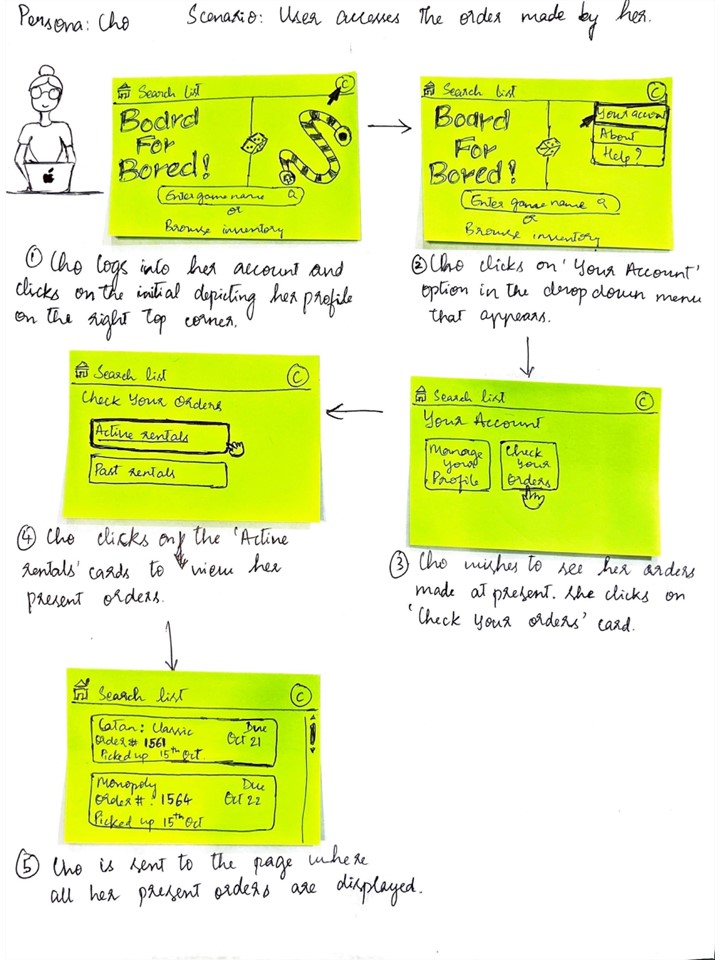 Persona: Cho
Scenario: User accesses the order made by her.
Search list
C
Board
For
Bored!
Enter game name
or
Browse inventory
① Cho logs into her account and
clicks on the initial depicting her profile
on the right top corner.
Search list
C
Your account
About
Help?
Board
For
Bored!
Enter game name
or
Browse inventory
② Cho clicks on 'Your Account'
option in the drop down menu
that appears.
Search list
C
Your Account
Manage
Your
Profile
Check
Your
Orders
③ Cho wishes to see her orders
made at present. She clicks on
'Check Your orders' card.
Search list
C
Check Your Orders
Active rentals
Past rentals
④ Cho clicks on the 'Active
rentals' cards to view her
present orders.
Search list
C
Catan: Classic Due
Order # 1561 Oct 21
Picked up 15th Oct.
Monopoly Due
Order # : 1564 Oct 22
Picked up 15th Oct
⑤ Cho is sent to the page where
all her present orders are displayed.